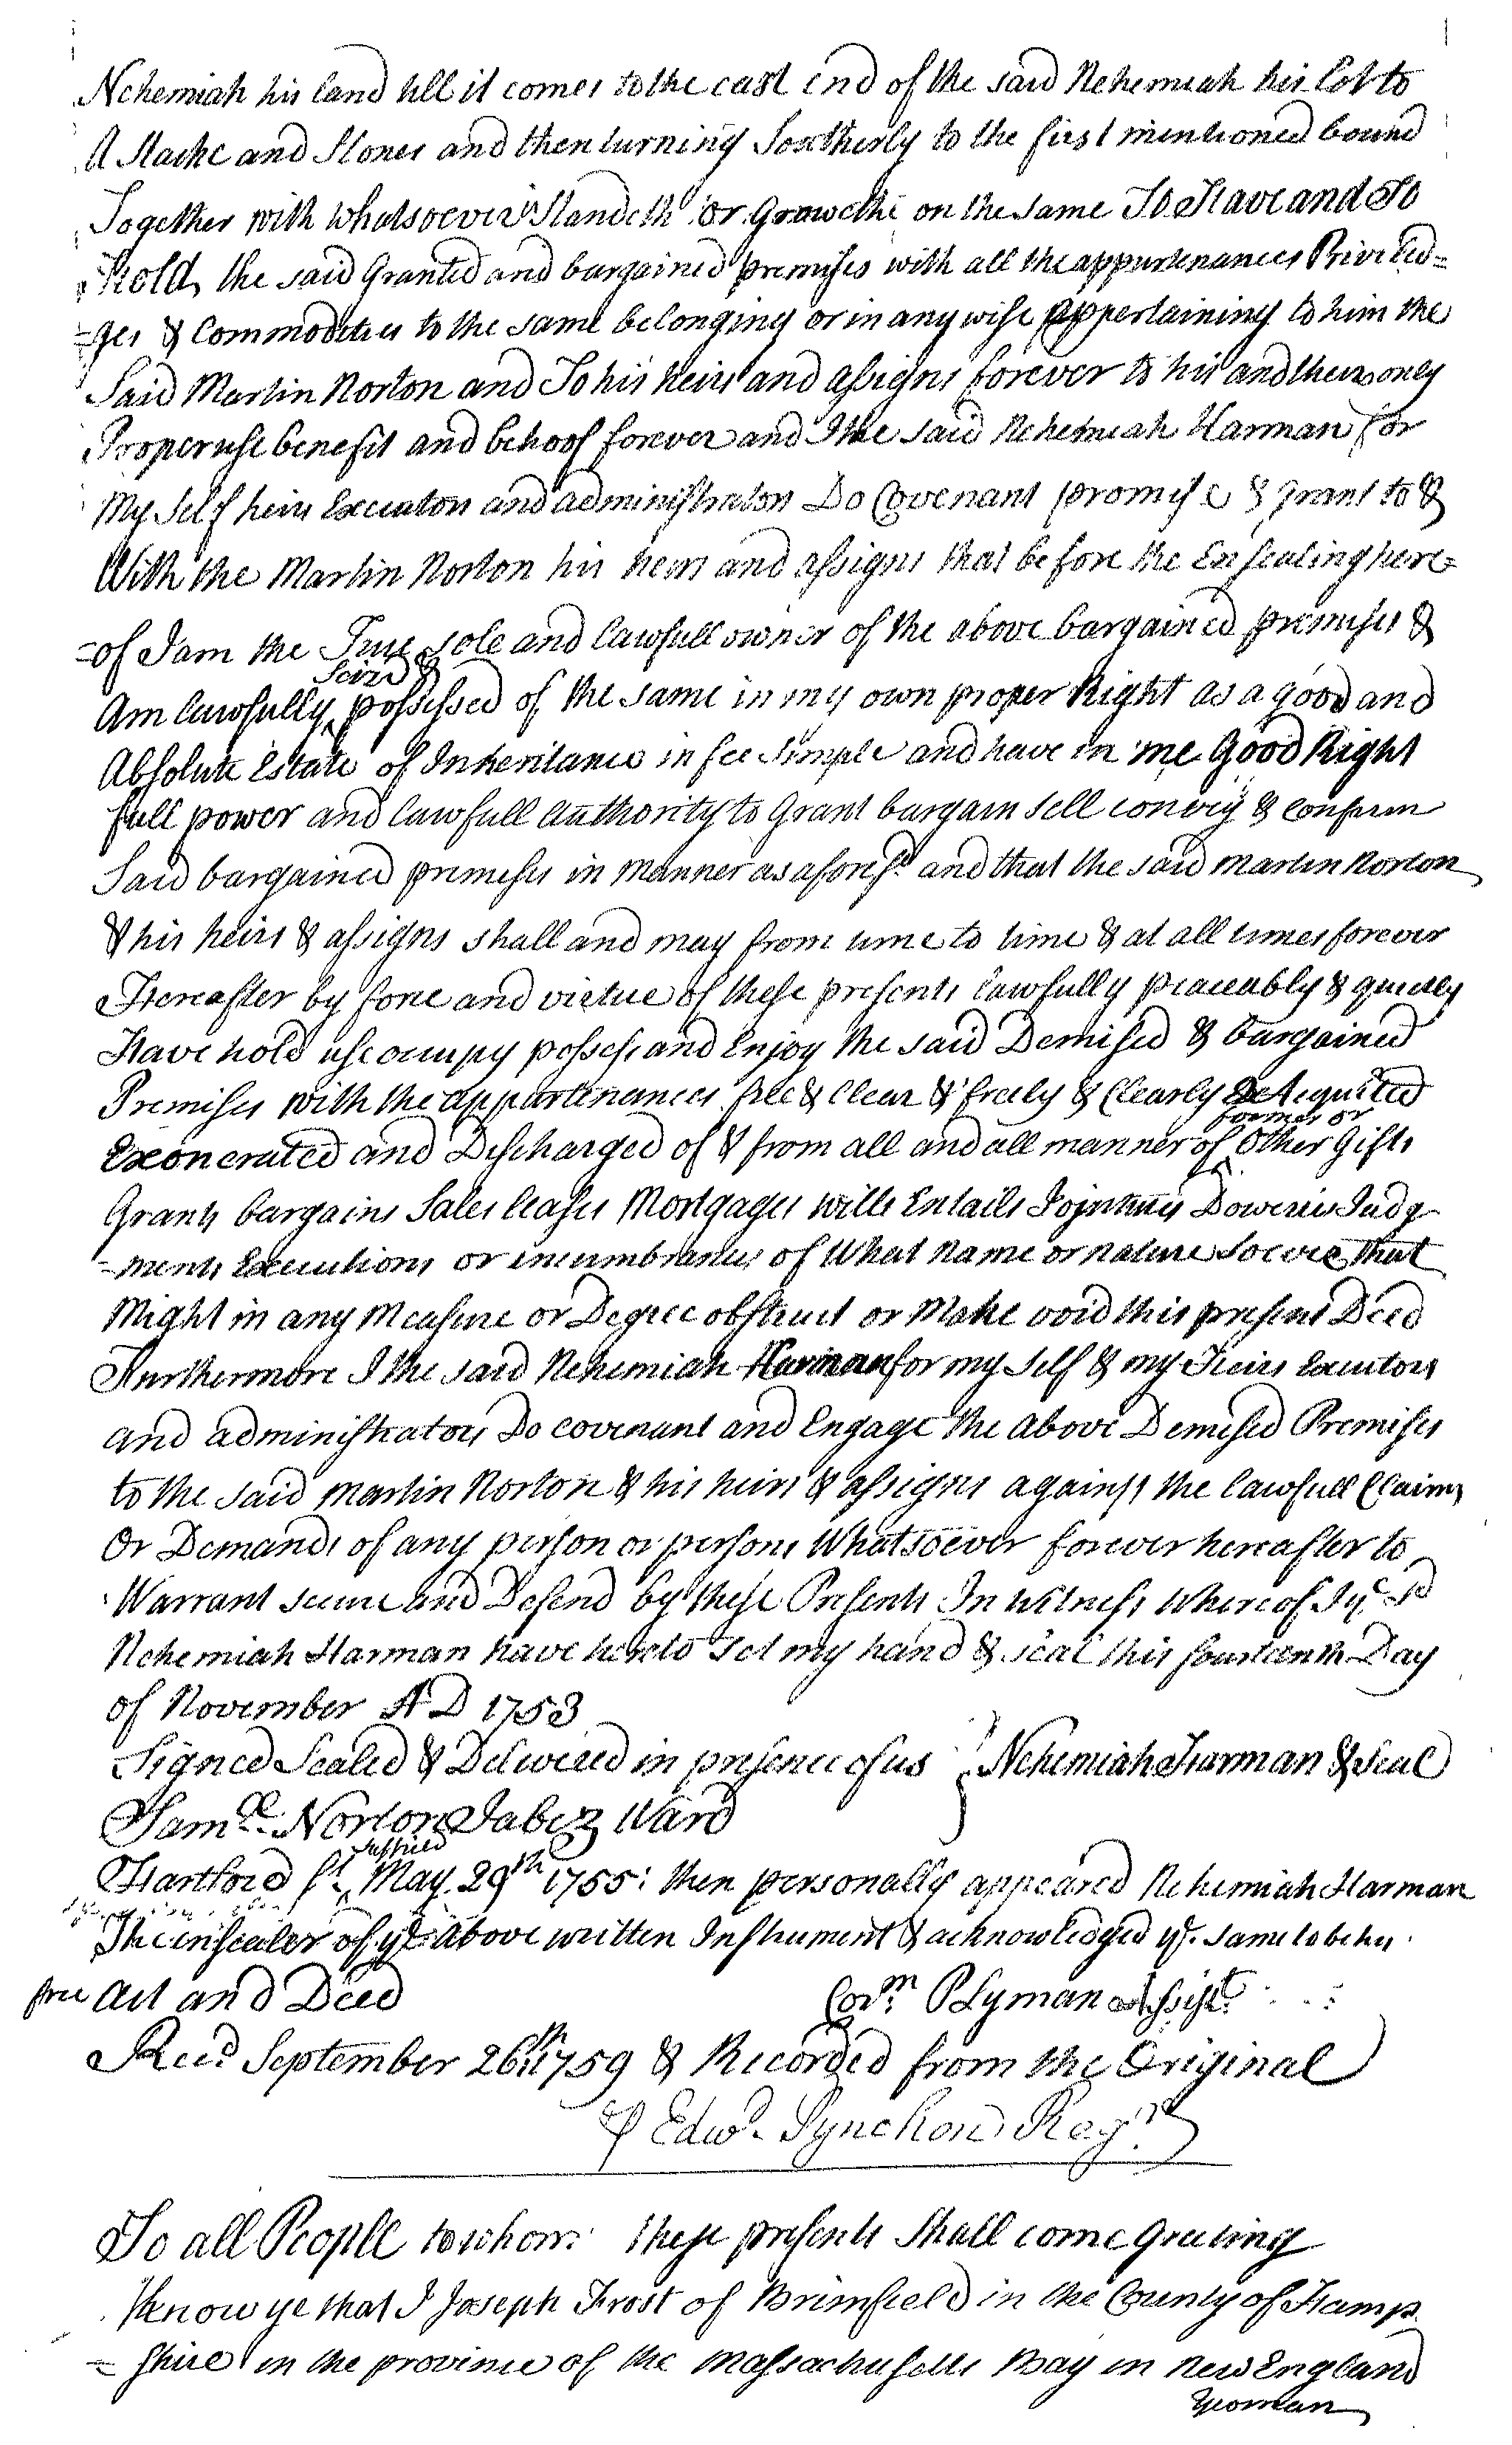 Nehemiah his land till it comes to the east end of the said Nehemiah his Lot to
A Stacke and Stones and then turning Southerly to the first mentioned bound
Together with whatsoever Standeth or Groweth on the same To Have and To
Hold the said Granted and bargained premises with all the appurtenances Priviled=
=ges & Commodities to the same belonging or in any wise appertaining to him the
Said Martin Norton and To his heirs and assigns forever to his and theirs only
Proper use benefit and behoof forever and I the said Nehemiah Harman for
My Self heirs Executors and administrators Do Covenant promise & grant to &
With the Martin Norton his heirs and assigns that before the Ensealing here=
=of I am the True sole and Lawfull owner of the above bargained premises &
Seized &
Am Lawfully possessed of the same in my own proper Right as a good and
Absolute Estate of Inheritance in fee Simple and have in me Good Right
full power and Lawfull Authority to Grant bargain Sell convey & confirm
Said bargained premises in Manner as afores.d and that the said Martin Norton
& his heirs & assigns shall and may from time to time & at all times forever
Hereafter by force and virtue of these presents Lawfully peaceably & quietly
Have hold use occupy possess and Enjoy the said Demised & bargained
Premises with the appurtenances free & Clear & freely & Clearly Acquited
former or
Exonerated and Discharged of & from all and all manner of Other Gifts
Grants bargains Sales leases Mortgages wills Entails Jointures Doweries Judg-
=ments Executions or incumbrances of What Name or nature Soever that
Might in any Measure or Degree obstruct or Make void this present Deed
Furthermore I the said Nehemiah Harman for my Self & my Heirs Executors
and administrators Do covenant and Engage the above Demised Premises
to the said Martin Norton & his heirs & assigns against the Lawfull Claims
Or Demands of any person or persons Whatsoever forever hereafter to
Warrant secure and Defend by these Presents In Witness Whereof I y.e s.d
Nehemiah Harman have hereto Set my hand & seal this fourteenth Day
of November A D 1753
Signed Sealed & Delivered in presence of us } Nehemiah Harman & Seal
Sam.ll Norton Jabez Ward
Suffield
Hartford ss May 29th 1755: then personally appeared Nehemiah Harman
The ensealer of y.e above written Instrument & acknowledged y.e same to be his
free Act and Deed Cor.m P Lyman Assist.t
Rec.d September 26th 1759 & Recorded from the Original
P Edw.d Pynchon Reg.r
To all People to whom these presents Shall come Greeting
Know ye that I Joseph Frost of Brimfield in the County of Hamp
=shire in the province of the Massachusetts Bay in New England
Yeoman